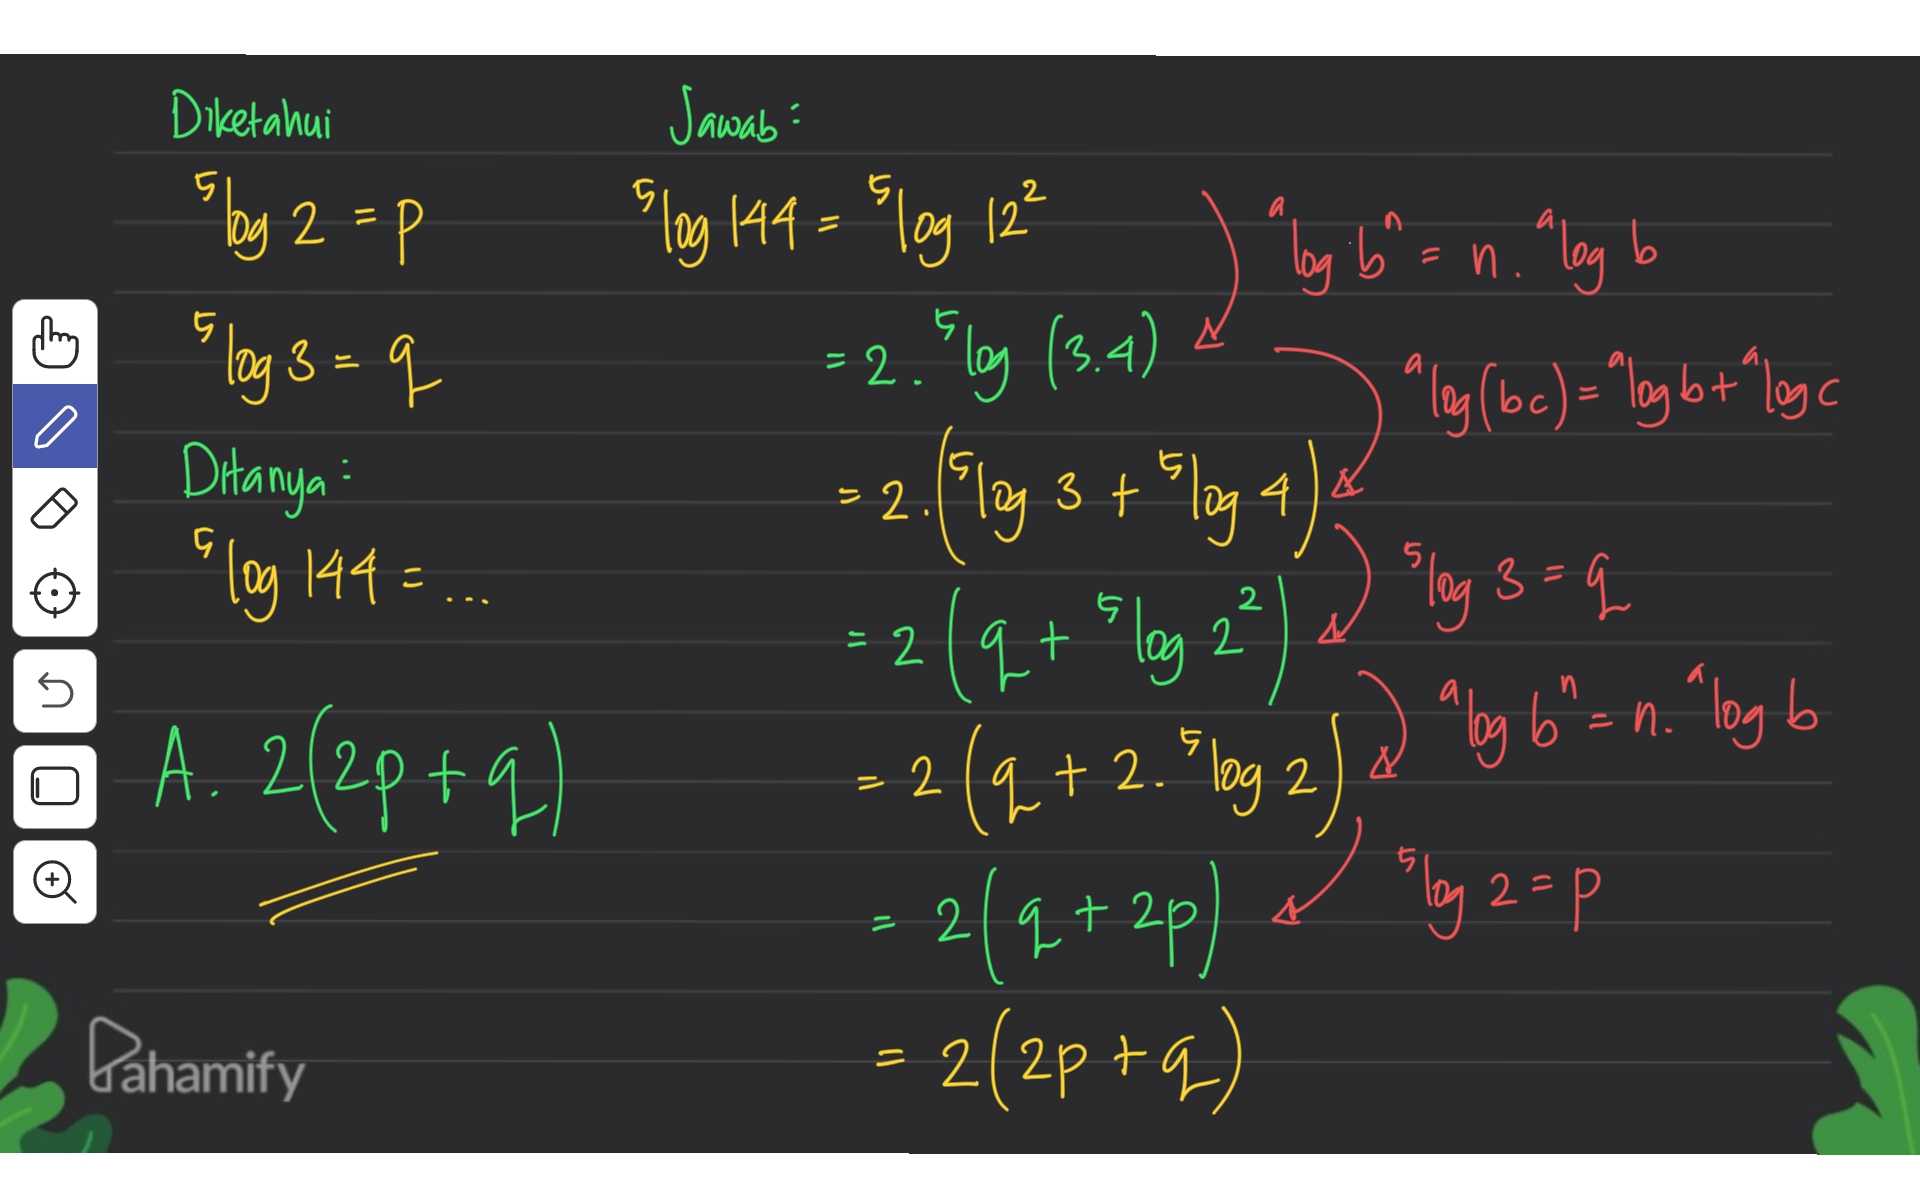 Diketahui
⁵log 2 = p
⁵log 3 = q
Ditanya :
⁵log 144 = ...
A. 2(2p + q)
Jawab :
⁵log 144 = ⁵log 12²
= 2 . ⁵log (3.4)
= 2 . (⁵log 3 + ⁵log 4)
= 2 (q + ⁵log 2²)
= 2 (q + 2 . ⁵log 2)
= 2 (q + 2p)
= 2 (2p + q)
ᵃlog bⁿ = n . ᵃlog b
ᵃlog (bc) = ᵃlog b + ᵃlog c
⁵log 3 = q
ᵃlog bⁿ = n . ᵃlog b
⁵log 2 = p
Pahamify